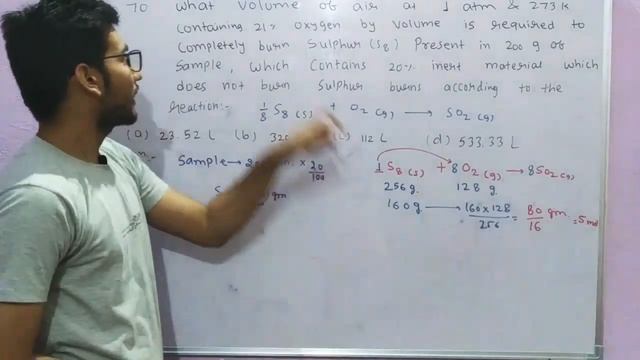 70 What volume of air at 1 atm & 273 K
containing 21% oxygen by volume is required to
completely burn Sulphur (S8) present in 200 g of
sample, which contains 20% inert material which
does not burn Sulphur burns according to the
reaction:- 1/8 S8 (s) + O2 (g) → SO2 (g)
(a) 23.52 L (b) 320 (c) 112 L (d) 533.33 L
Sample → × 20/100
1 S8 (s) + 8O2 (g) → 8SO2 (g)
256 g. 128 g.
gm
160 g → 160 x 128 / 256 = 80 / 16 gm. = 5 mol